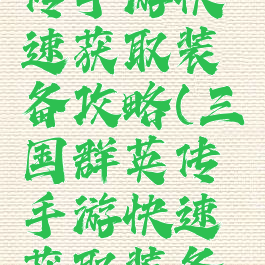 传手游快
速获取装
备攻略(三
国群英传
手游快速
获取装备